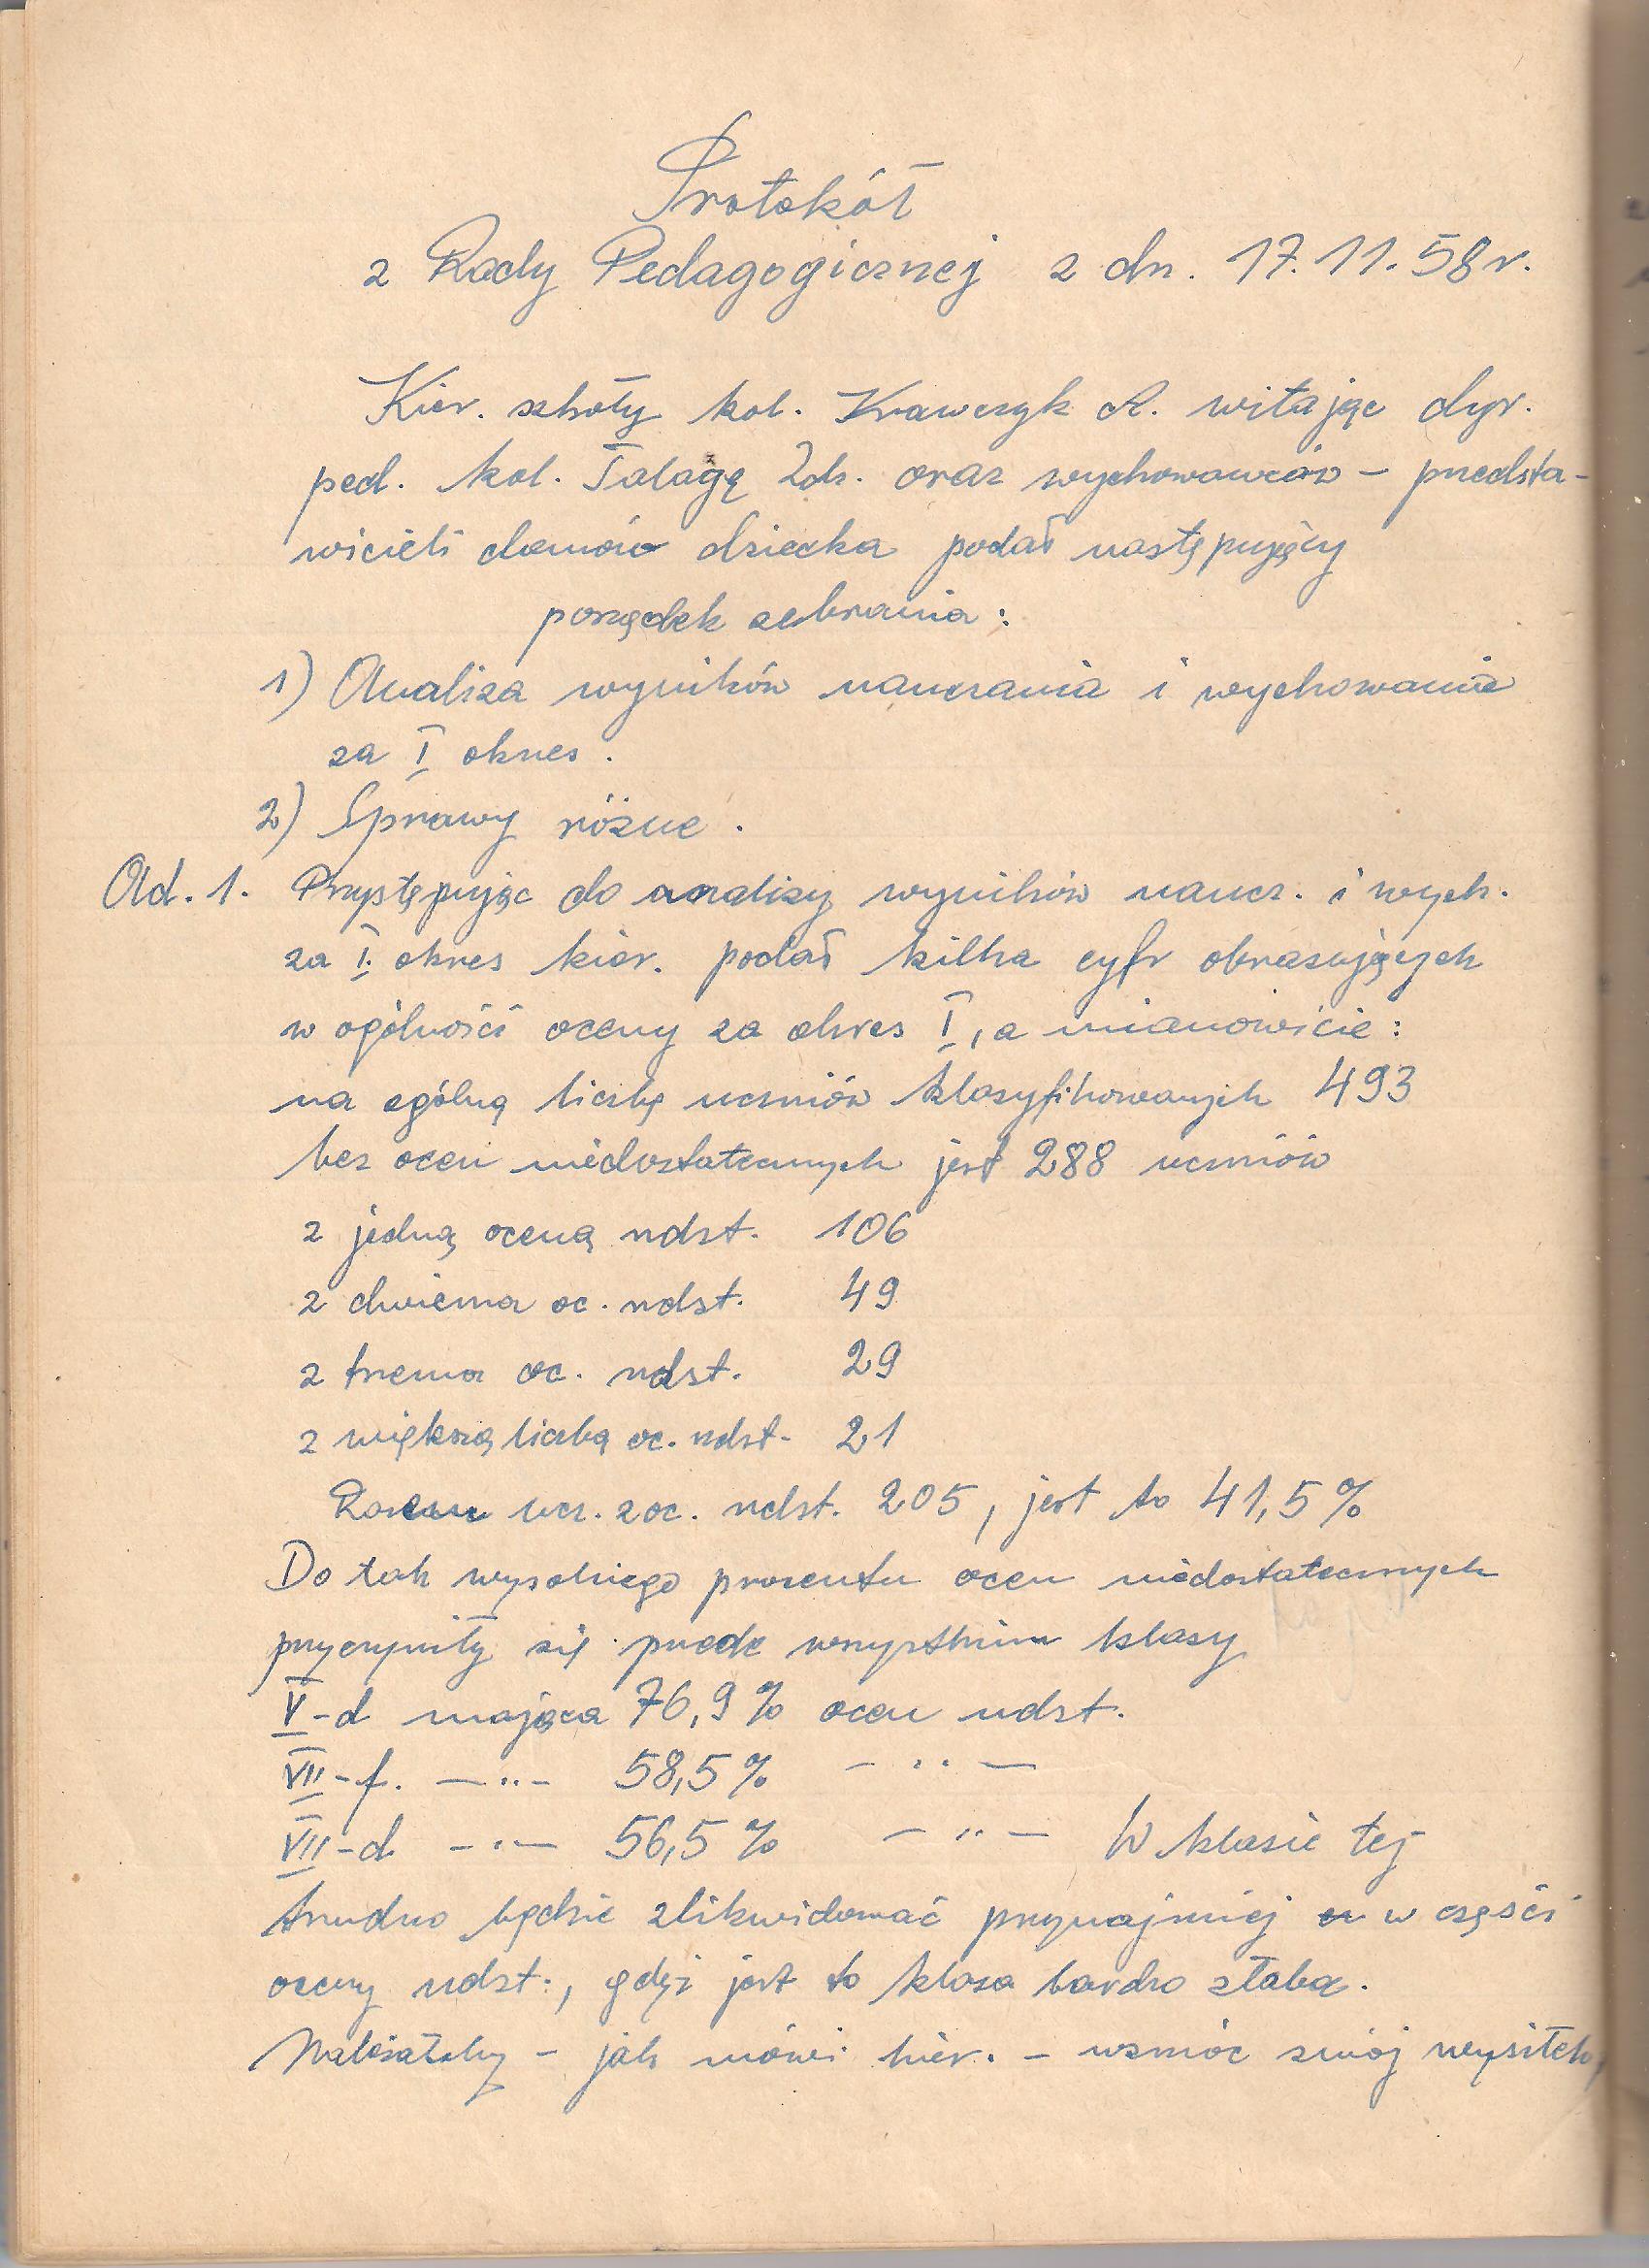 Protokół
z Rady Pedagogicznej z dn. 17.11.58 r.
Kier. szkoły kol. Krawczyk R. witając dyr.
ped. kol. Szelągę Zdz. oraz wychowawców – przedsta-
wicieli domów dziecka podał następujący
porządek zebrania:
1) Analiza wyników nauczania i wychowania
za I okres.
2) Sprawy różne.
Ad. 1. Przystępując do analizy wyników naucz. i wych.
za I. okres kier. podał kilka cyfr obrazujących
w ogólności oceny za okres I, a mianowicie:
na ogólną liczbę uczniów klasyfikowanych 493
bez ocen niedostatecznych jest 288 uczniów
z jedną oceną ndst. 106
z dwiema oc. ndst. 49
z trzema oc. ndst. 29
z większą liczbą oc. ndst. 21
Razem ucz. z oc. ndst. 205, jest to 41,5%
Do tak wysokiego procentu ocen niedostatecznych
przyczyniły się przede wszystkim klasy
V-d mająca 76,9% ocen ndst.
VII-f. —"— 58,5% —"—
VII-d —"— 56,5% —"— W klasie tej
trudno będzie zlikwidować przynajmniej w części
oceny ndst., gdyż jest to klasa bardzo słaba.
Należałoby – jak mówi kier. – wzmóc swój wysiłek,